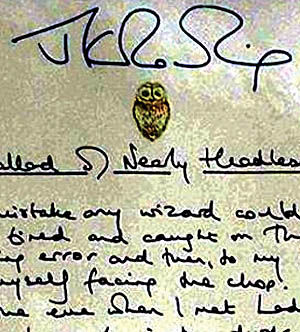 JKRowling
allad of Nearly Headles
mistake any wizard could
tired and caught on th
ng error and then, to my
myself facing the chop.
the eve when I met Lad